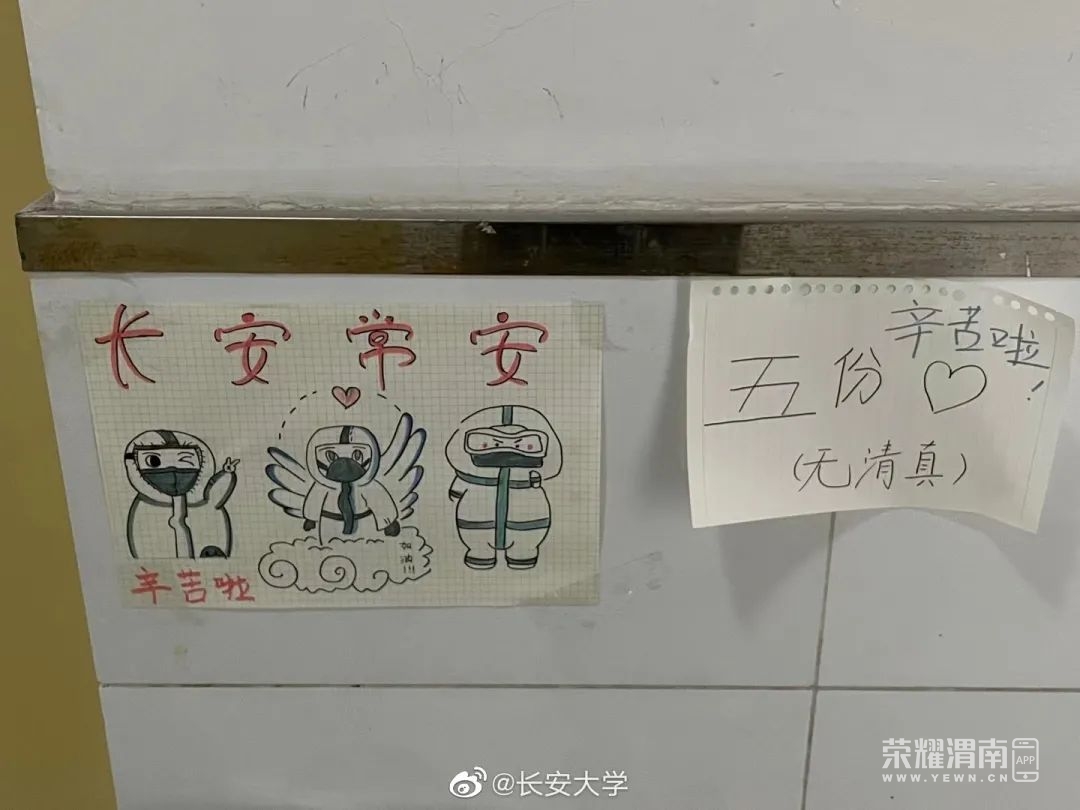 长安常安
加油!!!
辛苦啦
辛苦啦!
五份
(无清真)
@长安大学
荣耀渭南APP
WWW.YEWN.CN